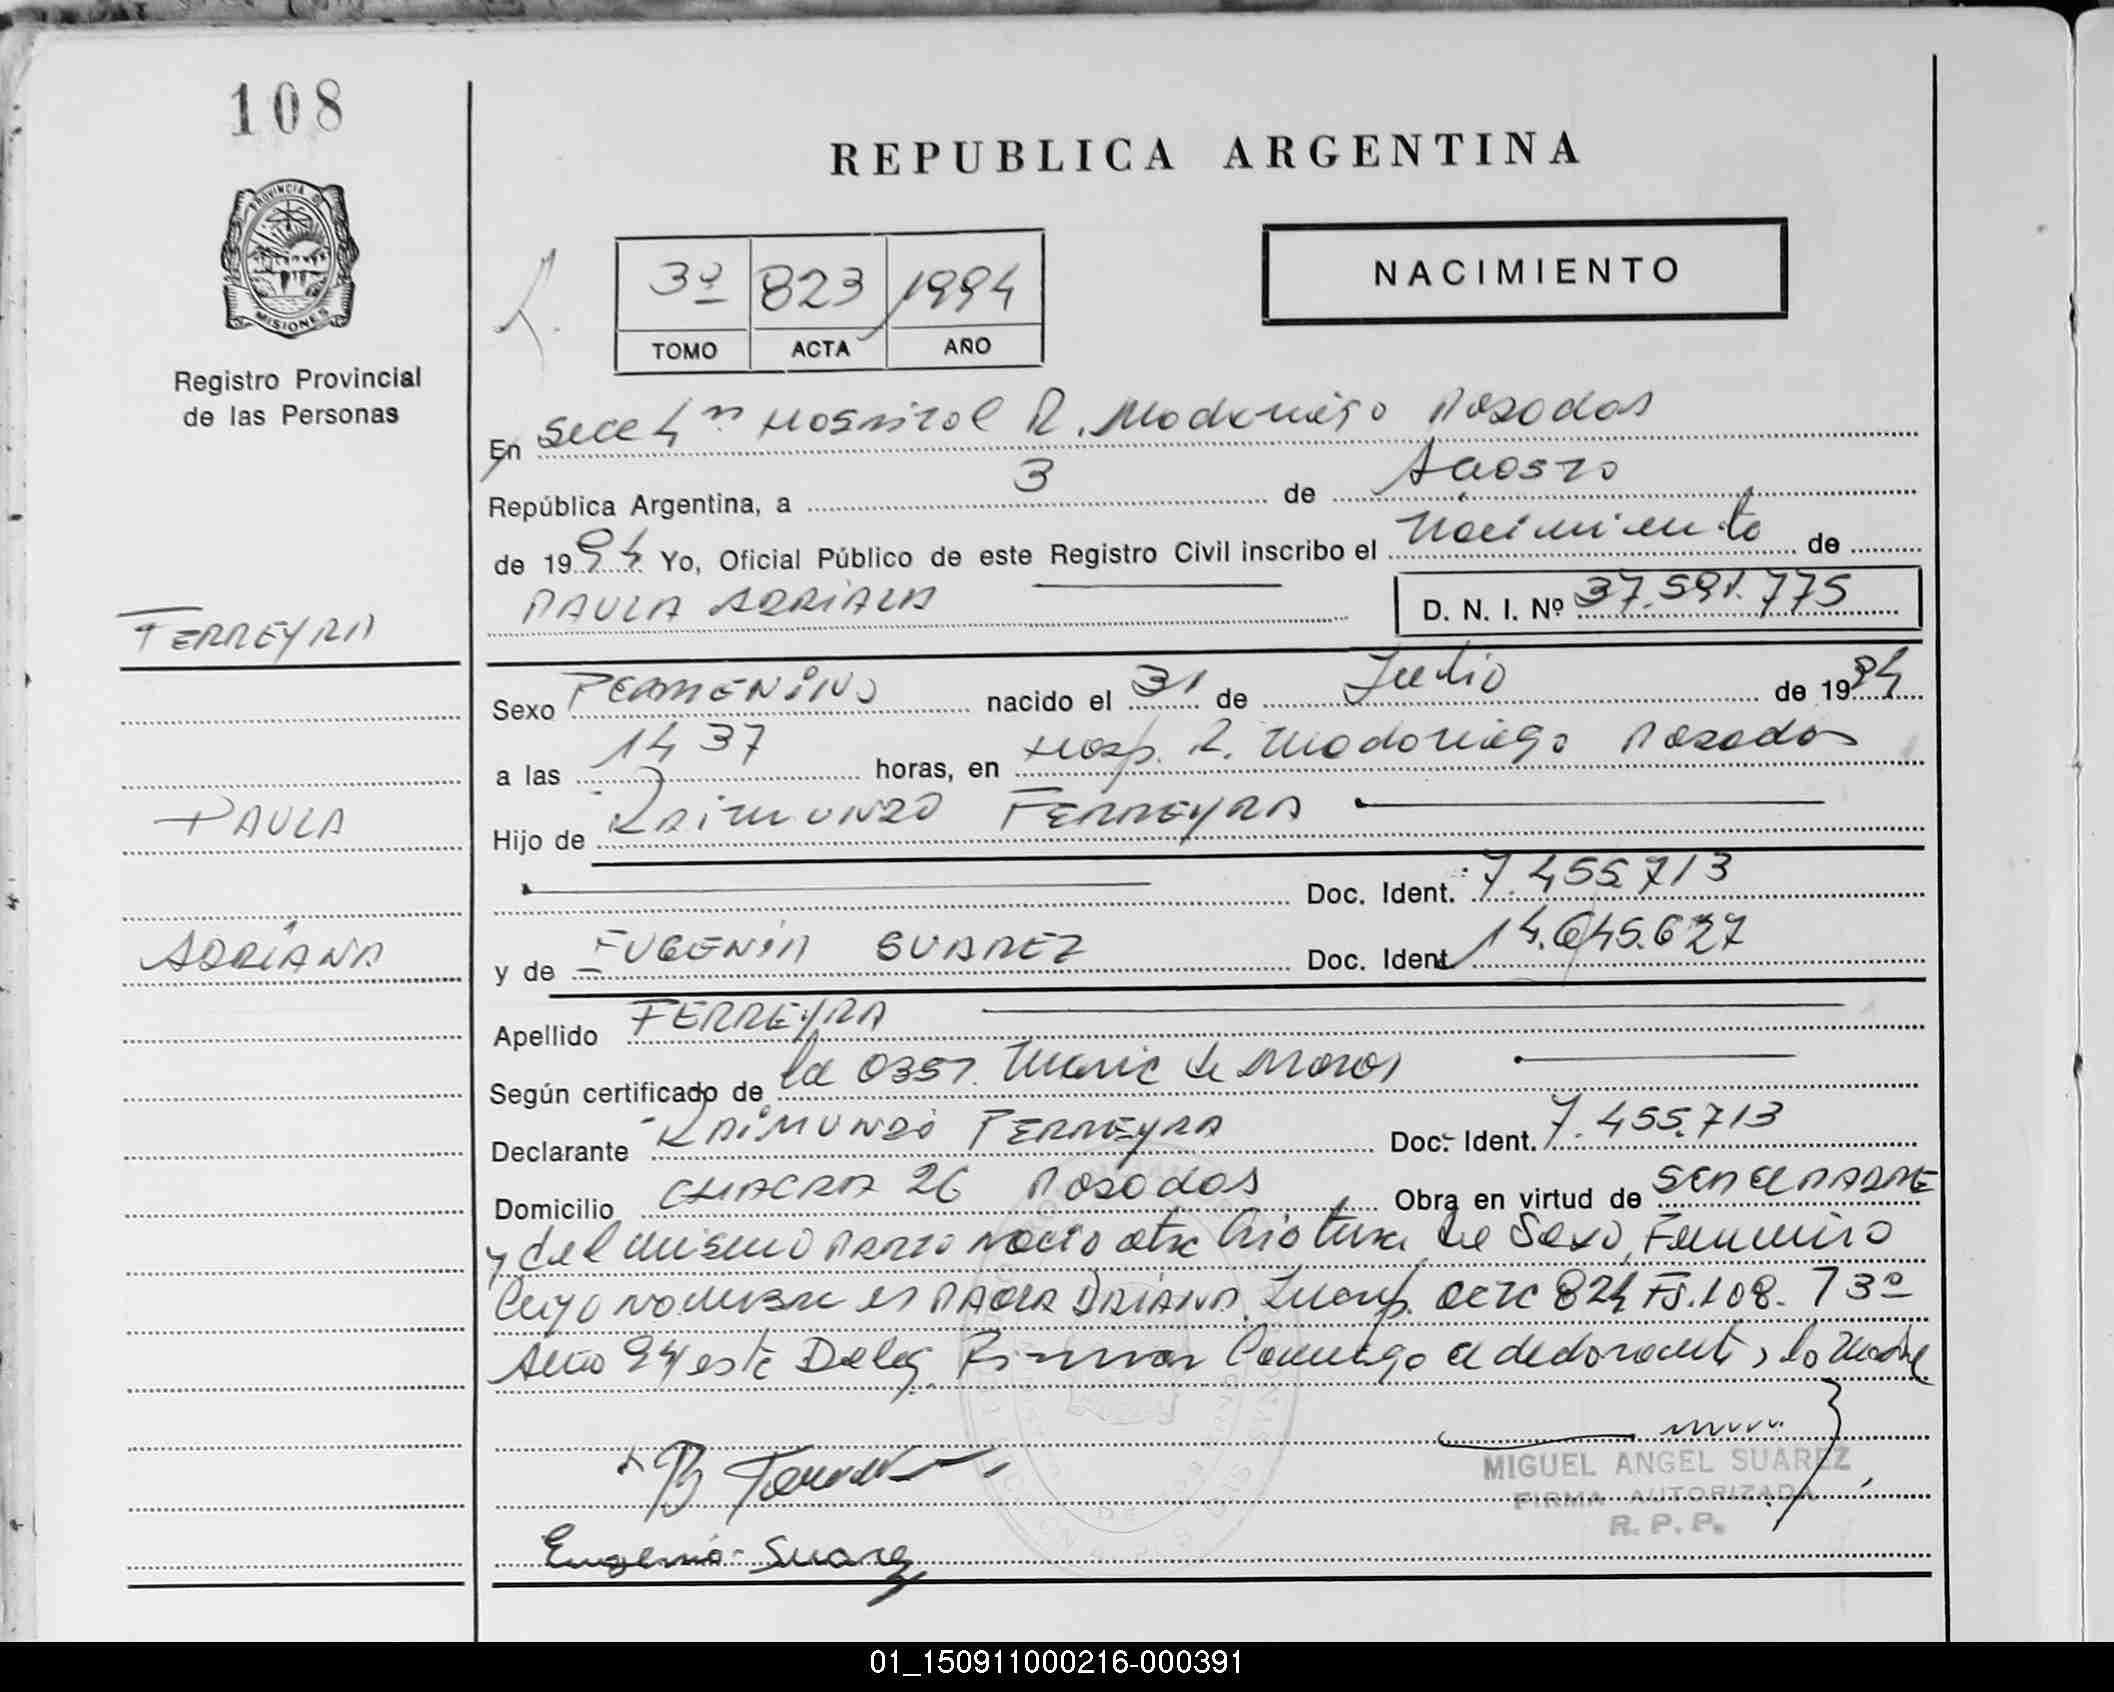 108
REPUBLICA ARGENTINA
PROVINCIA D MISIONES
NACIMIENTO
3º 823 1994
TOMO ACTA AÑO
Registro Provincial
de las Personas
En Secc 4ª Hospital R. Madariaga Posadas
República Argentina, a 3 de Agosto
de 1994 Yo, Oficial Público de este Registro Civil inscribo el Nacimiento de
PAULA ADRIANA D. N. I. Nº 37.591.775
FERREYRA
Sexo FEMENINO nacido el 31 de Julio de 1994
a las 14 37 horas, en Hosp. R. Madariaga Posadas
PAULA
Hijo de RAIMUNDO FERREYRA
Doc. Ident. 7.455.713
ADRIANA
y de EUGENIA SUAREZ Doc. Ident 14.645.627
Apellido FERREYRA
Según certificado de la Obst. Maria de
Declarante RAIMUNDO FERREYRA Doc. Ident. 7.455.713
Domicilio CHACRA 26 Posadas Obra en virtud de SER el PADRE
y del mismo PARTO Nacio otra Criatura de Sexo Femenino
Cuyo NOMBRE es PAOLA Inscrip. Acta 824 Fº.108. T 3º
Año 94 este Deleg. Firman Conmigo el declarante y la Madre
MIGUEL ANGEL SUAREZ
FIRMA AUTORIZADA
R. P. P.
Eugenia Suarez
01_150911000216-000391